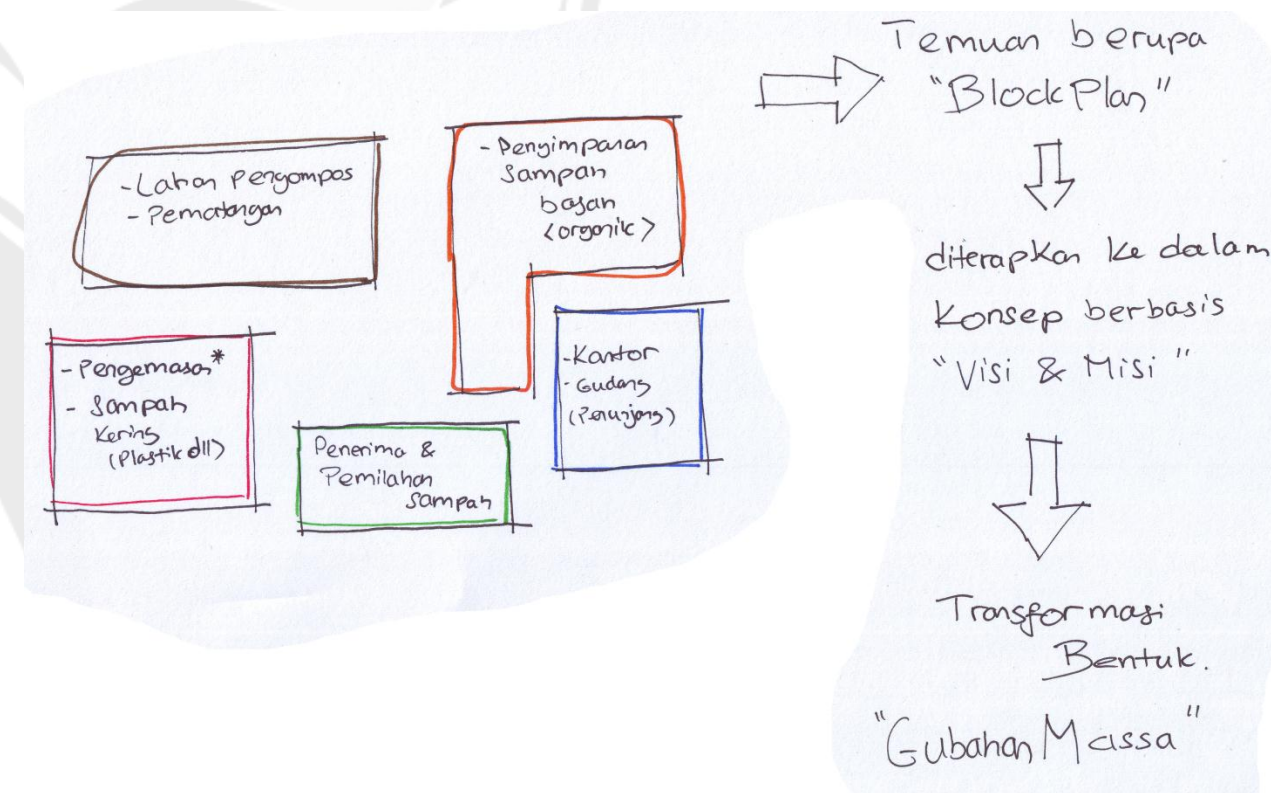 - Lahan Pengompos
- Pematangan
- Penyimpanan
Sampah
basah
<organik>
- Pengemasan*
- Sampah
Kering
(Plastik dll)
Penerima &
Pemilahan
Sampah
- Kantor
- Gudang
(Penunjang)
Temuan berupa
"Block Plan"
diterapkan ke dalam
Konsep berbasis
"Visi & Misi"
Transformasi
Bentuk.
"Gubahan Massa"